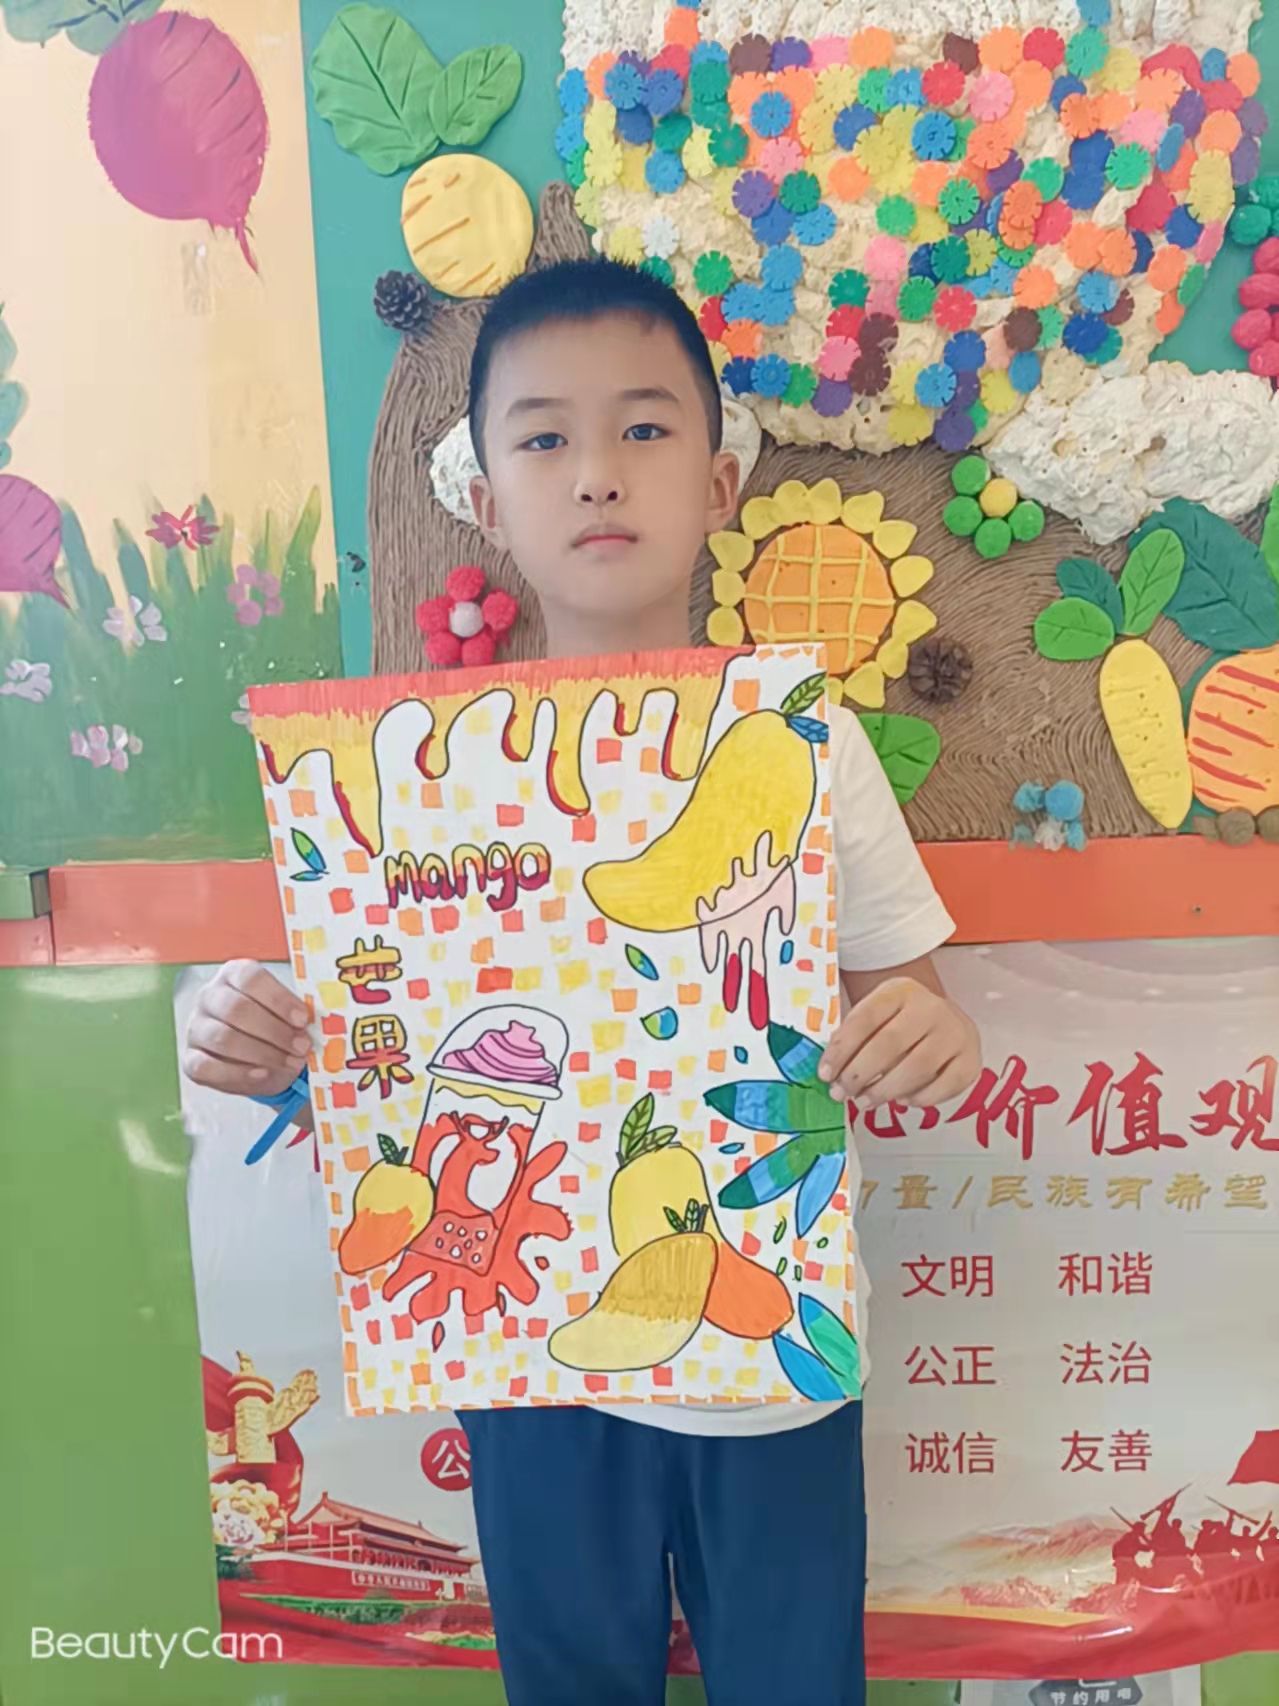 mango
芒
果
价值观
量/民族有希望
文明 和谐
公正 法治
诚信 友善
公
BeautyCam
节约用电